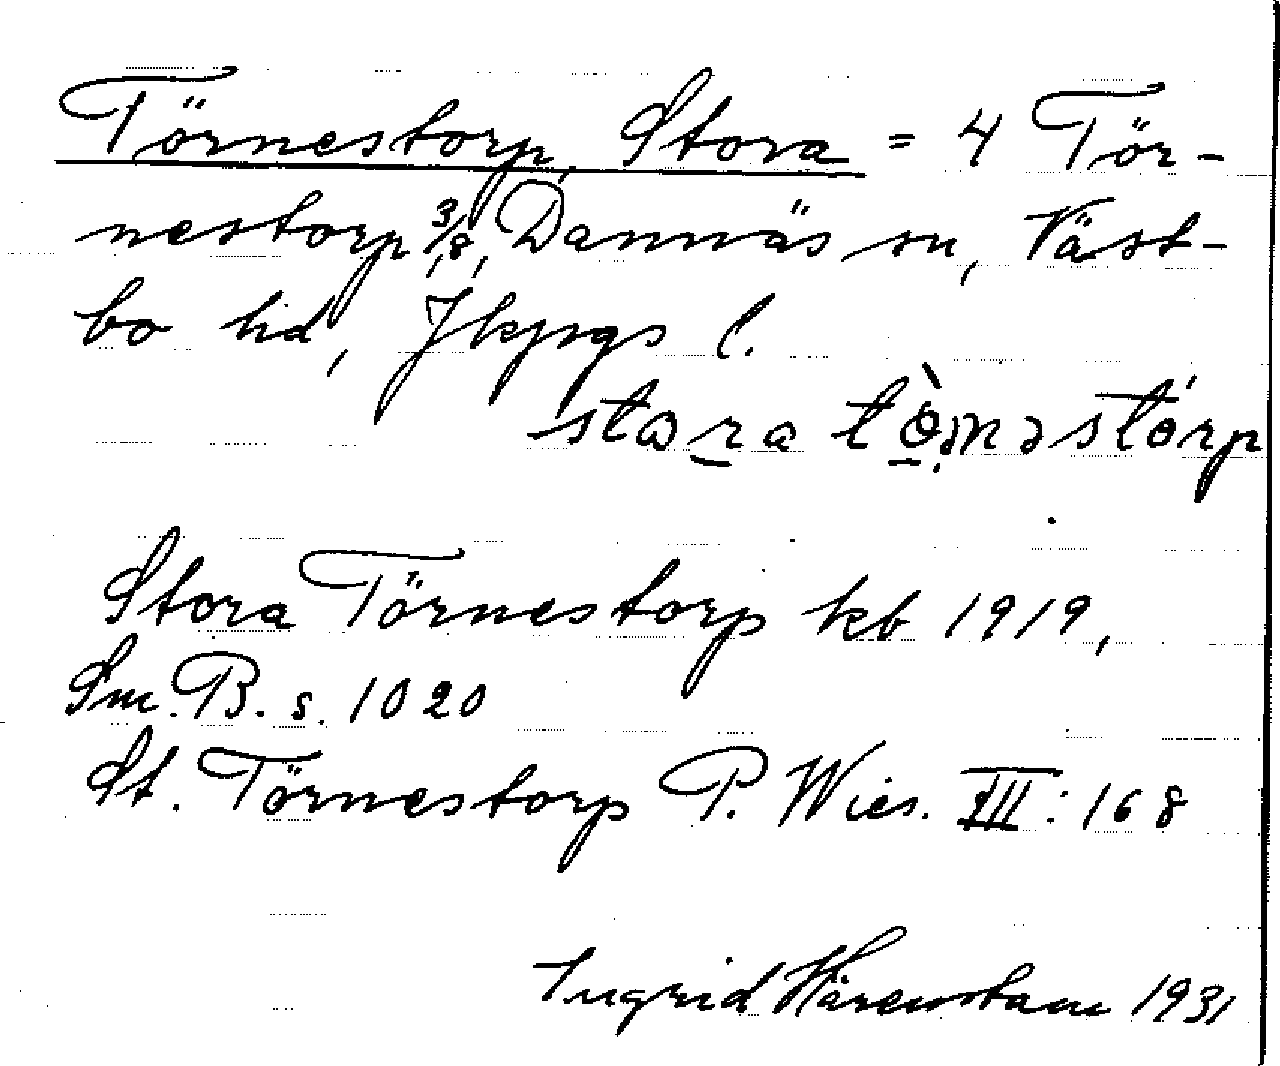 Törnestorp, Stora = 4 Tör-
nestorp 3/8, Dannäs sn, Väst-
bo hd, Jkpgs l.
Stora Törnestorp kb 1919,
Sm. B. s. 1020
St. Törnestorp P. Wies. III: 168
Ingrid Härenstam 1931